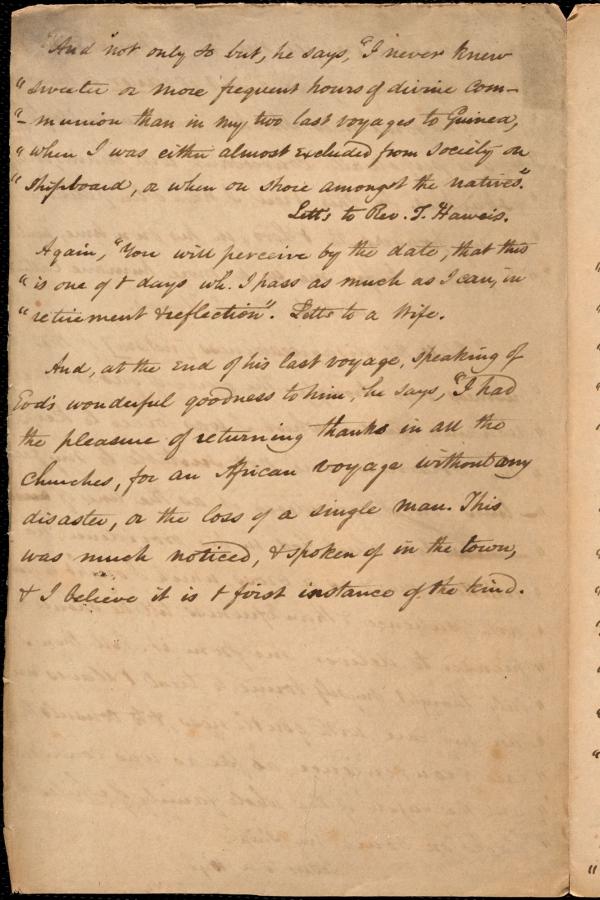 "And not only so but, he says, "I never knew
" sweeter or more frequent hours of divine com-
"- munion than in my two last voyages to Guinea,
" when I was either almost excluded from society on
" shipboard, or when on shore amongst the natives".
Letts to Rev. T. Haweis.
Again, "You will perceive by the date, that this
" is one of t days wh. I pass as much as I can, in
" retirement & reflection". Letts to a Wife.
And, at the end of his last voyage, speaking of
God's wonderful goodness to him, he says, "I had
the pleasure of returning thanks in all the
Churches, for an African voyage without any
disaster, or the loss of a single man. This
was much noticed, & spoken of in the town,
& I believe it is t first instance of the kind.
"
"
"
"
"
"
"